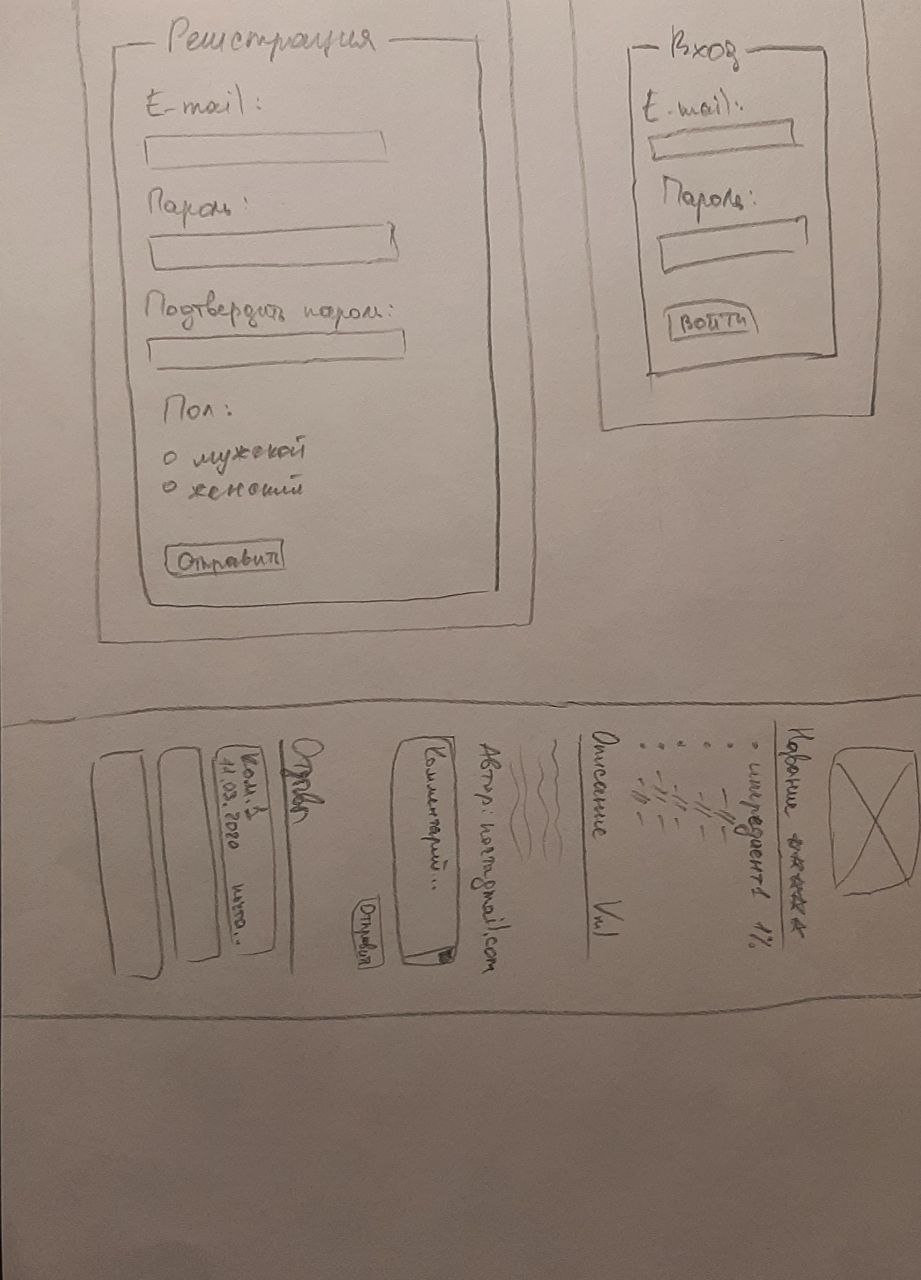 Регистрация
E-mail:
Пароль:
Подтвердить пароль:
Пол:
мужской
женский
Отправить
Вход
E-mail:
Пароль:
Войти
Название
ингредиент 1 1%
-//-
-//-
-//-
-//-
Описание
Автор: почта@mail.com
Комментарий..
Отправит
Отзывы
Ком. 1
11.03.2020 почта..